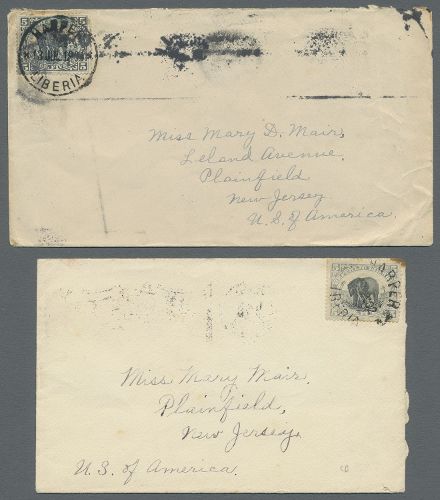 HARPER
LIBERIA
Miss Mary D. Mair,
Leland Avenue,
Plainfield
New Jersey
U.S. of America.
HARPER
LIBERIA
Miss Mary Mair,
Plainfield,
New Jersey,
U.S. of America.